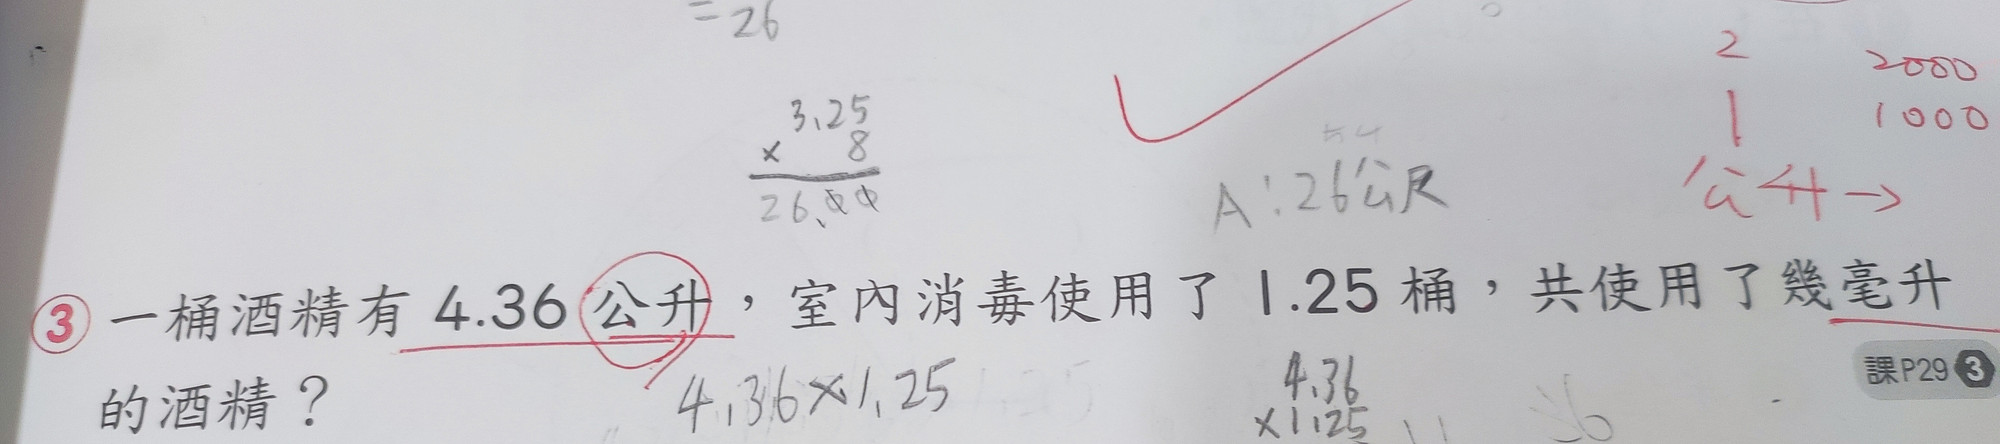 =26
3.25
× 8
26.00
A:26公尺
2 2000
1 1000
公升→
3 一桶酒精有 4.36 公升,室內消毒使用了 1.25 桶,共使用了幾毫升
的酒精?
課P29 3
4.36×1.25
4.36
×1.25